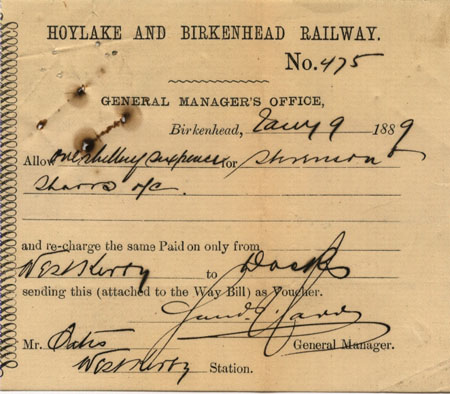 HOYLAKE AND BIRKENHEAD RAILWAY.
No. 475
GENERAL MANAGER'S OFFICE,
Birkenhead, Jany 9 1889
Allow one shilling sixpence for
a/c
and re-charge the same Paid on only from
West Kirby to Docks
sending this (attached to the Way Bill) as Voucher.
General Manager.
Mr. Oates
West Kirby Station.